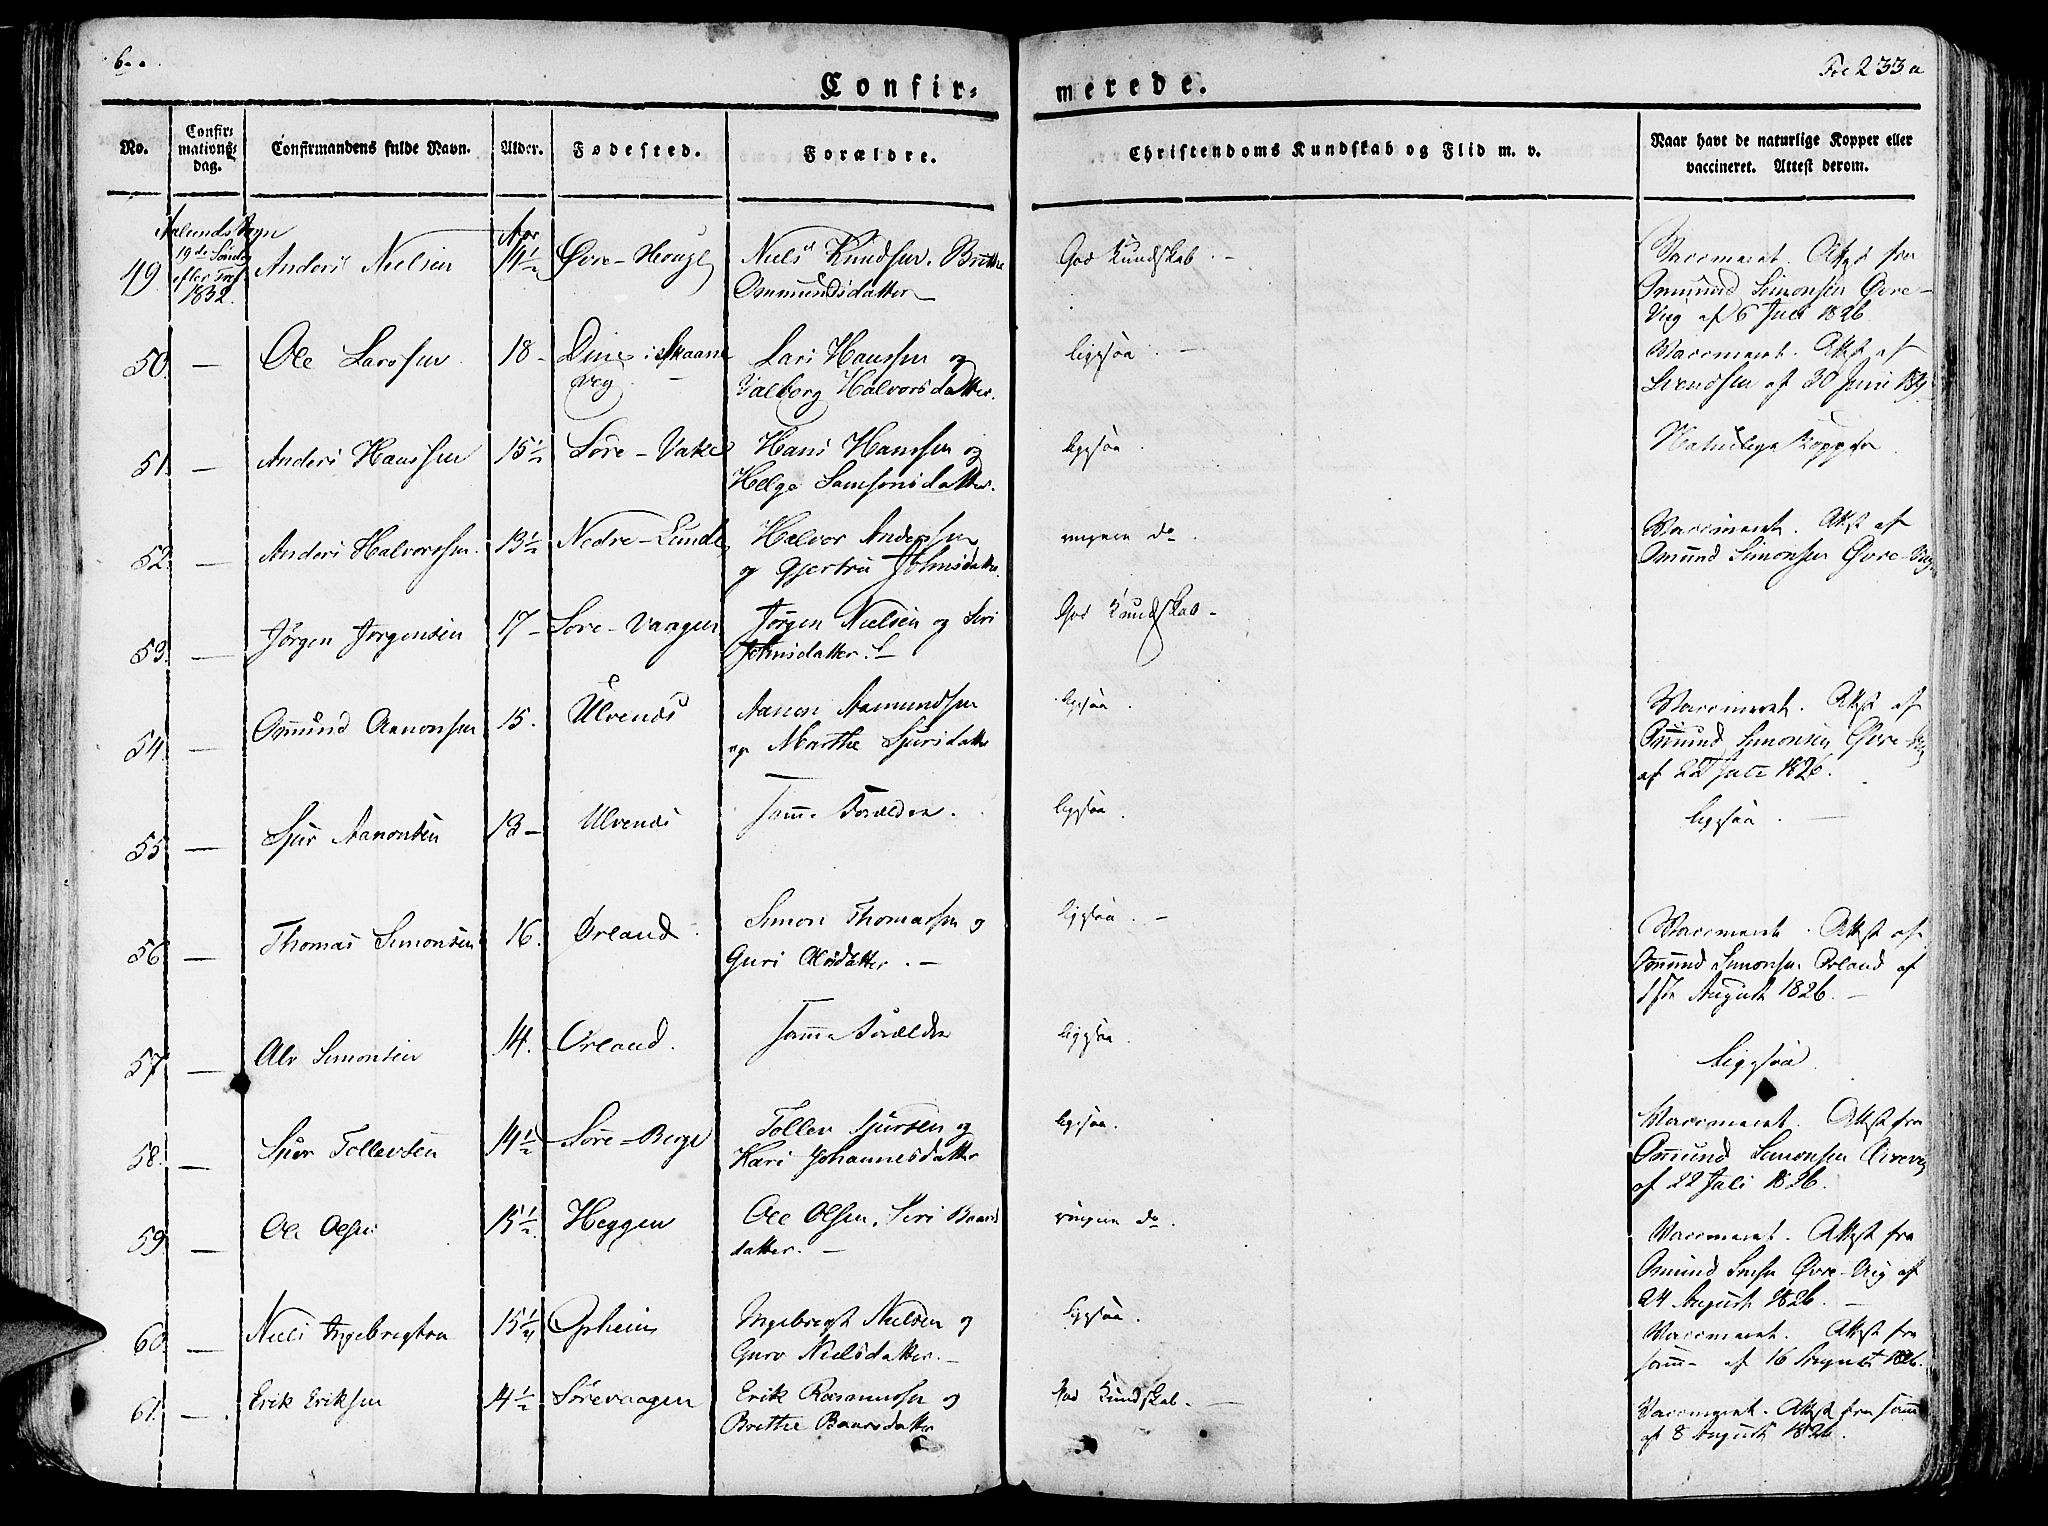 Confir-
merede.
Fol 233 a
No.
Confir-
mations-
dag.
Confirmandens fulde Navn.
Alder.
Fødested.
Forældre.
Christendoms Kundskab og Flid m. v.
Naar havt de naturlige Kopper eller
vaccineret. Attest derom.
Aar
49
19de Sönd
efter Tref
1832.
Anders Nielsen
14½
Øvre-Houge
Niels Knudsen. Brithe
Ommundsdatter
God Kundskab. —
Vaccineret. Attest fra
Omund Simonsen Øvre-
Vig af 6 Juli 1826
50. —
Ole Larssen
18 -
i Skaane
vig
Lars Hanssen og
Valborg Halvorsdatter.
ligesaa. —
Vaccineret. Attest af
Svendsen af 30 Juni
51. —
Anders Hanssen
15½
Søre-Vake
Hans Hanssen og
Helge Samsonsdatter.
ligesaa.
Naturlige Kopper
52. —
Anders Halvorssen.
13½
Nedre-Lunde
Halvor Anderssen
og Gjertru Johnsdatter.
ringere do.
Vaccineret. Attest af
Omund Simonsen Øvre-Vig
53. —
Jörgen Jörgensen
17 -
Søre-Vaagen
Jörgen Nielsen og Siri
Johnsdatter. —
God Kundskab -
54. —
Omund Aanonsen
15.
Ulvenes
Aanon Aamundsen
og Marthe Sjursdatter
ligesaa.
Vaccineret. Attest af
Omund Simonsen Øvre-Vig
af 22 Juli 1826.
55. —
Sjur Aanonsen
13 -
Ulvenes
Samme Forældre.
ligesaa.
ligesaa. —
56. —
Thomas Simonsen
16.
Ørland
Simon Thomassen og
Guri Olsdatter. —
ligesaa. —
Vaccineret. Attest af
Omund Simonsen Ørland af
August 1826. —
57. —
Alv Simonsen
14.
Ørland.
Samme Forældre
ligesaa.
ligesaa.
58. —
Sjur Tollevsen
14½
Søre-Berge
Tollev Sjursen og
Kari Johannesdatter
ligesaa.
Vaccineret. Attest fra
Omund Simonsen Øvrevig
af 22 Juli 1826.
59. —
Ole Olsen
15½
Heggen
Ole Olsen. Siri Baards
datter. —
ringere do.
Vaccineret. Attest fra
Omund Øvre-Vig af
24 August 1826. —
60. —
Niels Ingebregtsen
15½
Opheim
Ingebregt Nielsen og
Guro Nielsdatter. —
ligesaa.
Vaccineret. Attest fra
samme af 16 August 1826.
61. —.
Erik Eriksen
14½
Sörevaagen
Erik Rasmussen og
Brithe Baarsdatter
God Kundskab. —
Vaccineret. Attest fra samme
af 8 August 1826.